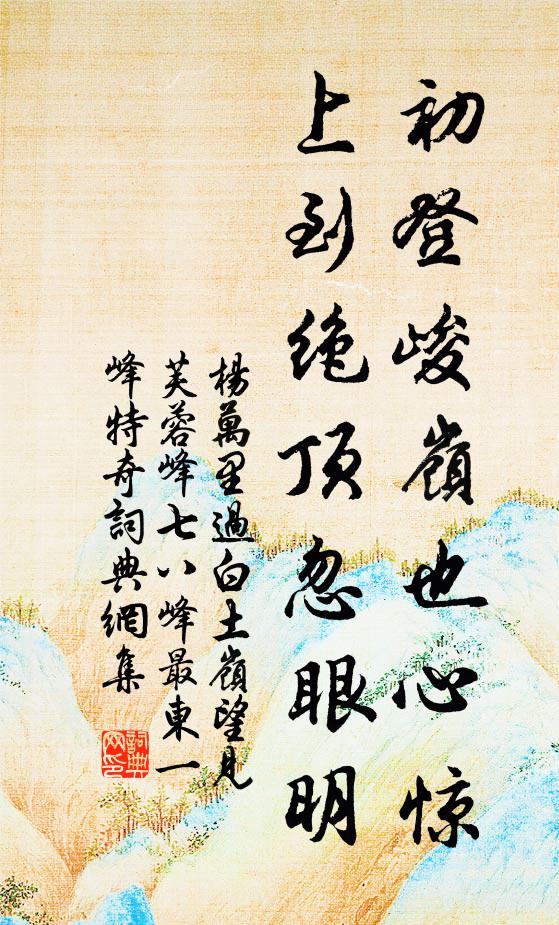 初登峻嶺也心惊
上到绝顶忽眼明
楊萬里過白土嶺望見
芙蓉峰七八峰最東一
峰特奇詞典網集
詞典
网印